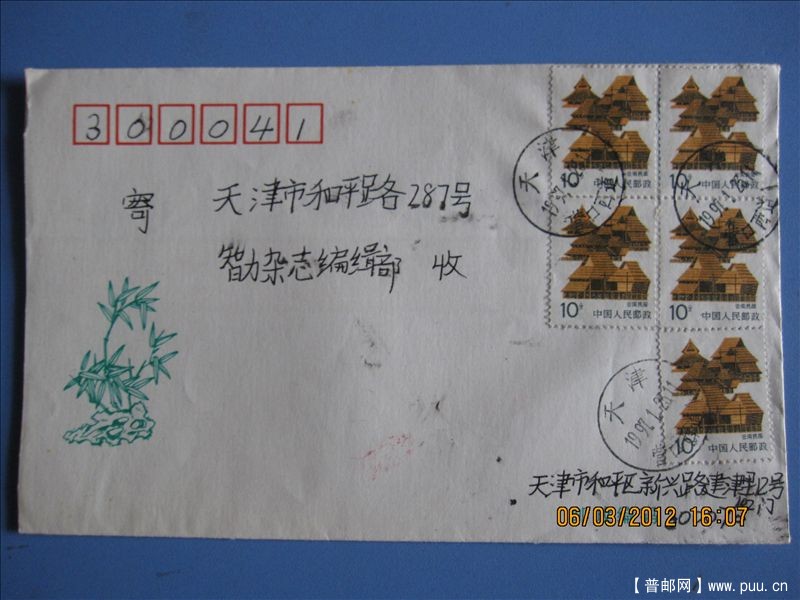 300041
寄 天津市和平路各287号
智力杂志编辑部 收
10分
云南民居
中国人民邮政
10分
云南民居
中国人民邮政
10分
云南民居
中国人民邮政
10分
云南民居
中国人民邮政
10分
云南民居
中国人民邮政
天津
天津
天津
1997.1.23.11
天津市和平区新兴路建津里12号
06/03/2012 16:07
【普邮网】www.puu.cn